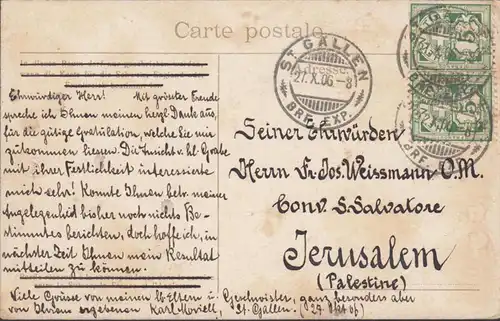 Carte postale.
ST GALLEN
Adresse.
27.X.06.-8
BRF. EXP.
Ehrwürdiger Herr! Mit grösster Freude
spreche ich Ihnen meinen herzl. Dank aus,
für die gütige Gratulation, welche Sie mir
zukommen liessen. Die Ansicht v. hl. Grabe
mit ihrer Festlichkeit interessierte
mich sehr! Konnte Ihnen betr. meiner
Angelegenheit bisher noch nichts Be-
stimmtes berichten, doch hoffe ich, in
nächster Zeit Ihnen mein Resultat
mitteilen zu können.
Viele Grüsse von meinen lb. Eltern u. Geschwister, ganz besonders aber
von Ihrem ergebenen Karl St. Gallen. (27. Okt 06)
Seiner Ehrwürden
Herrn Fr. Jos. Weissmann O.M.
Conv. S. Salvatore
Jerusalem
(Palestine)